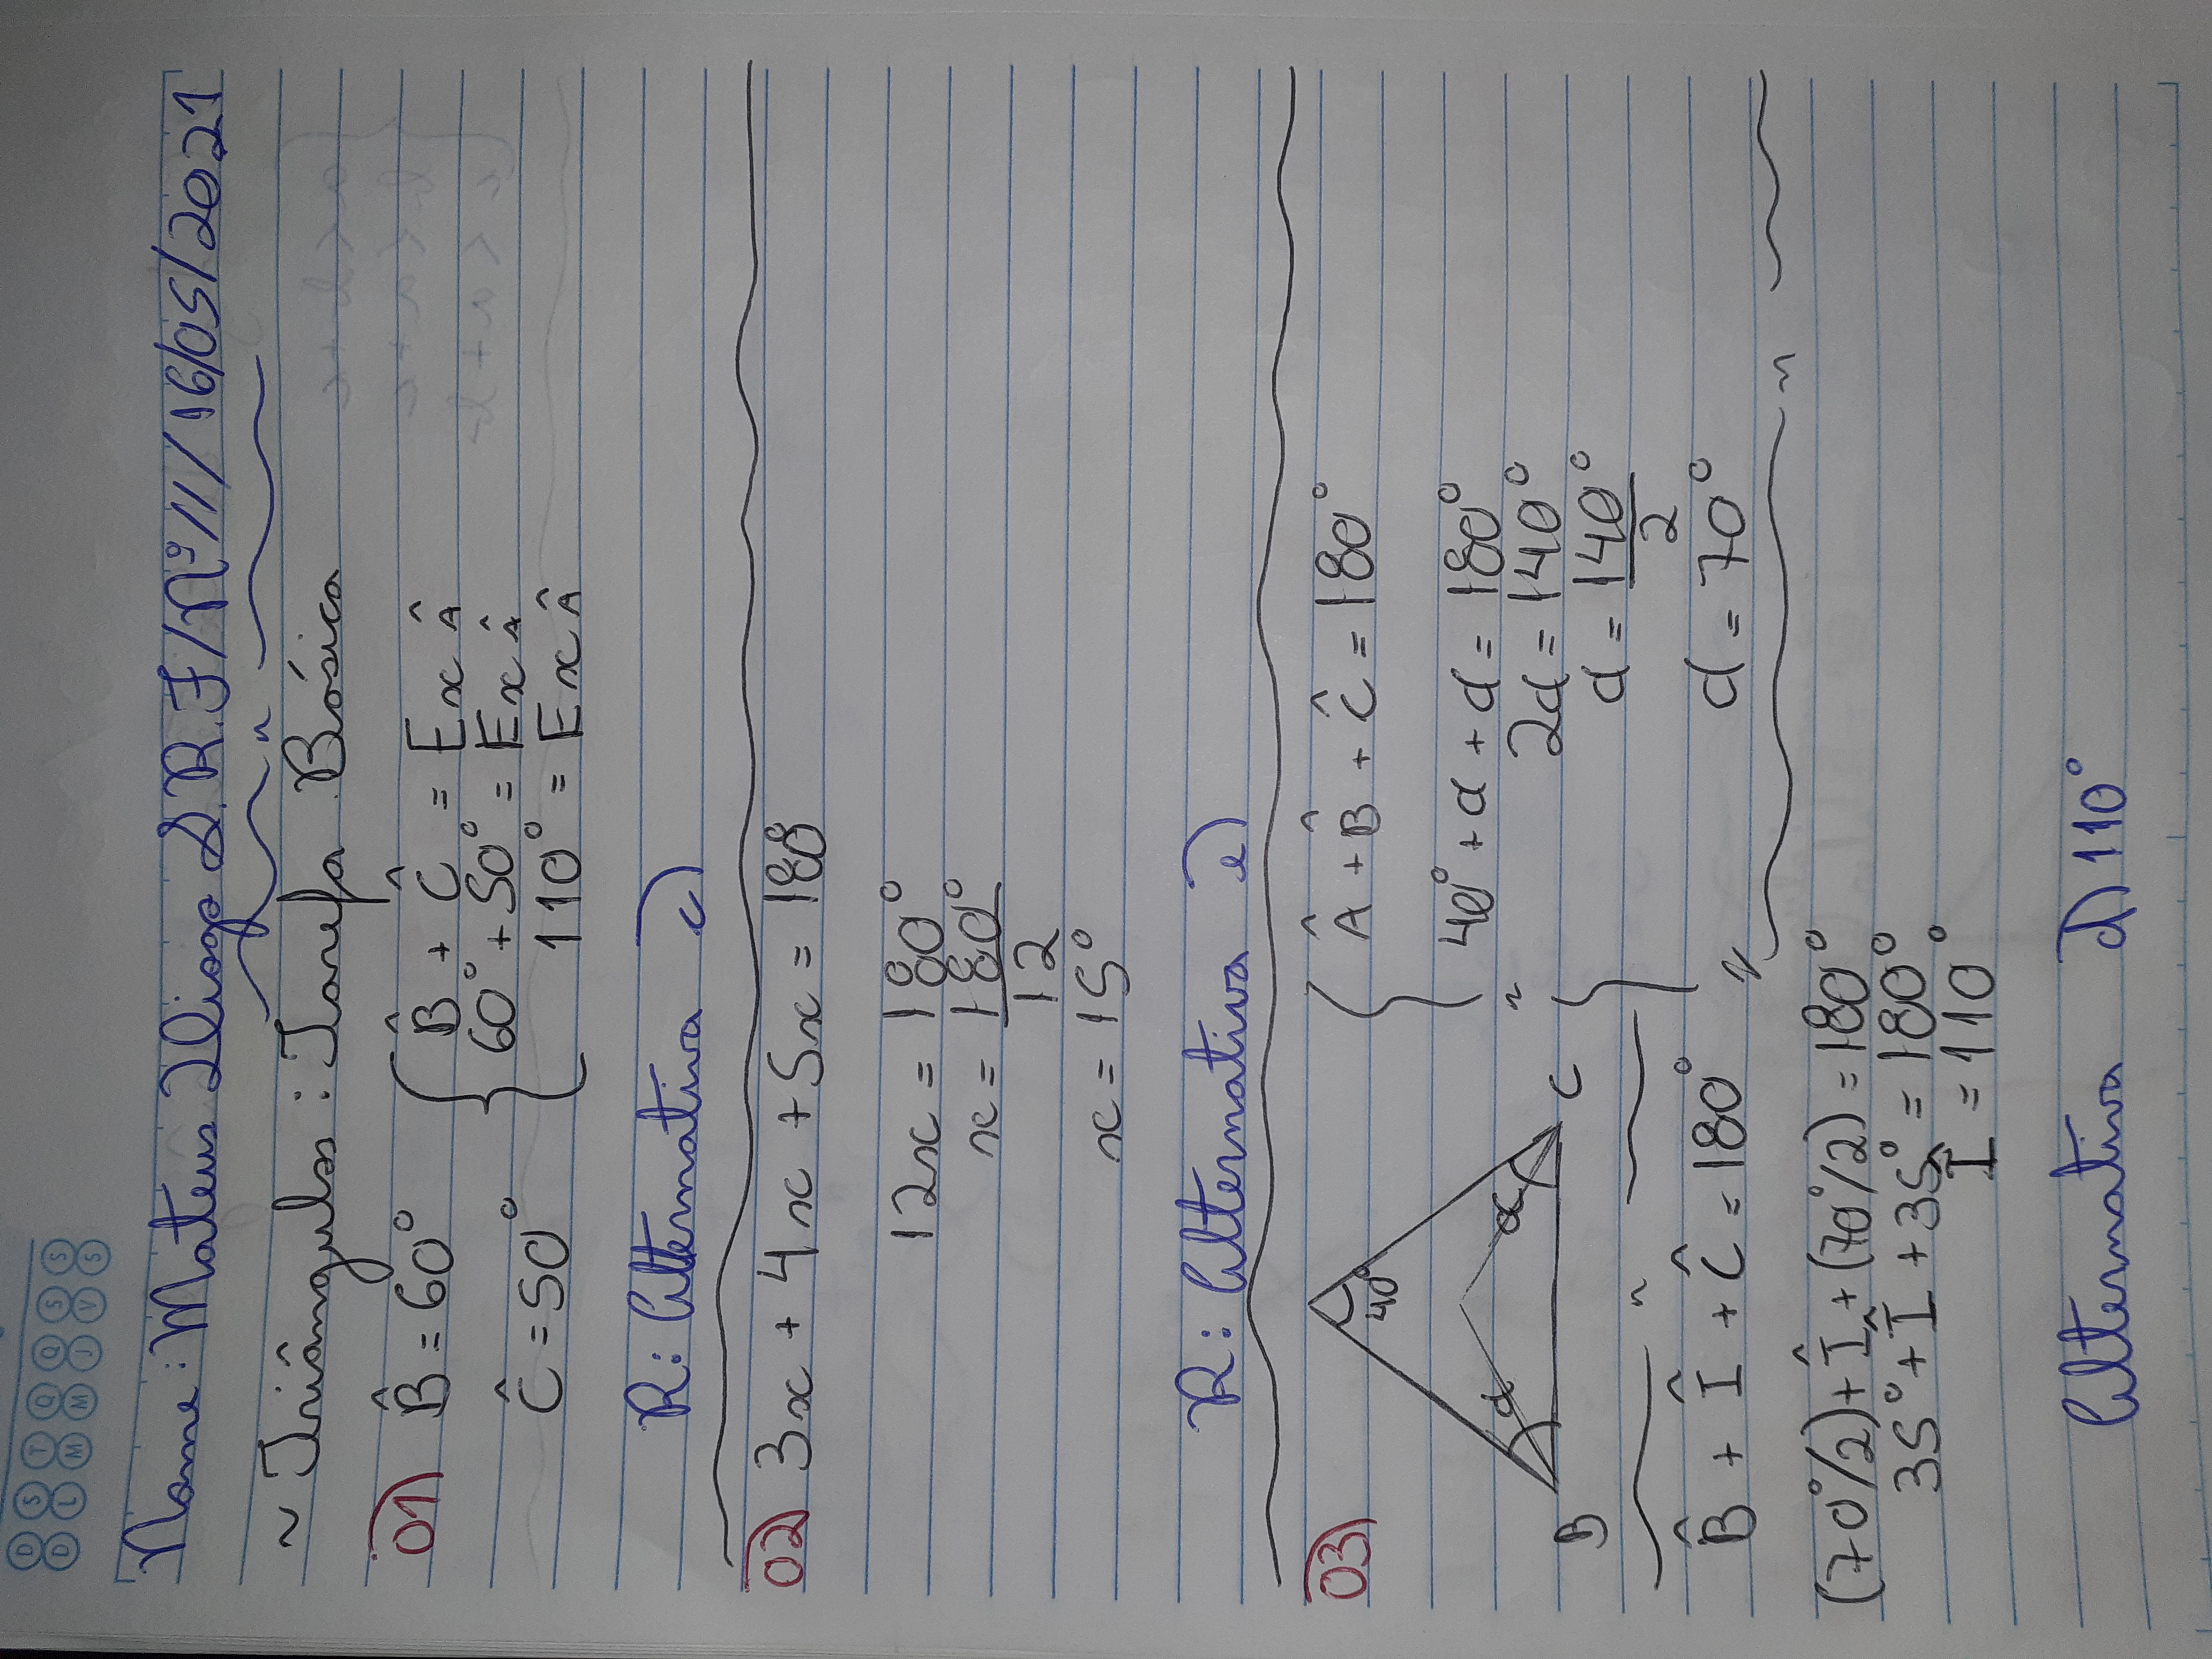 D S T Q Q S S
D L M M J V S
Nome: Mateus Diogo S.R.F/Nº11/16/05/2021
~ Triângulos: Tarefa Básica
01) B̂ = 60°
Ĉ = 50°
B̂ + Ĉ = Ex Â
60° + 50° = Ex Â
110° = Ex Â
R: Alternativa c)
02) 3x + 4x + 5x = 180
12x = 180°
x = 180°
12
x = 15°
R: Alternativa e)
03)
40°
α α
B C
Â + B̂ + Ĉ = 180°
40° + α + α = 180°
2α = 140°
α = 140°
2
α = 70°
B̂ + Î + Ĉ = 180°
(70°/2) + Î + (70°/2) = 180°
35° + Î + 35° = 180°
Î = 110°
Alternativa d) 110°